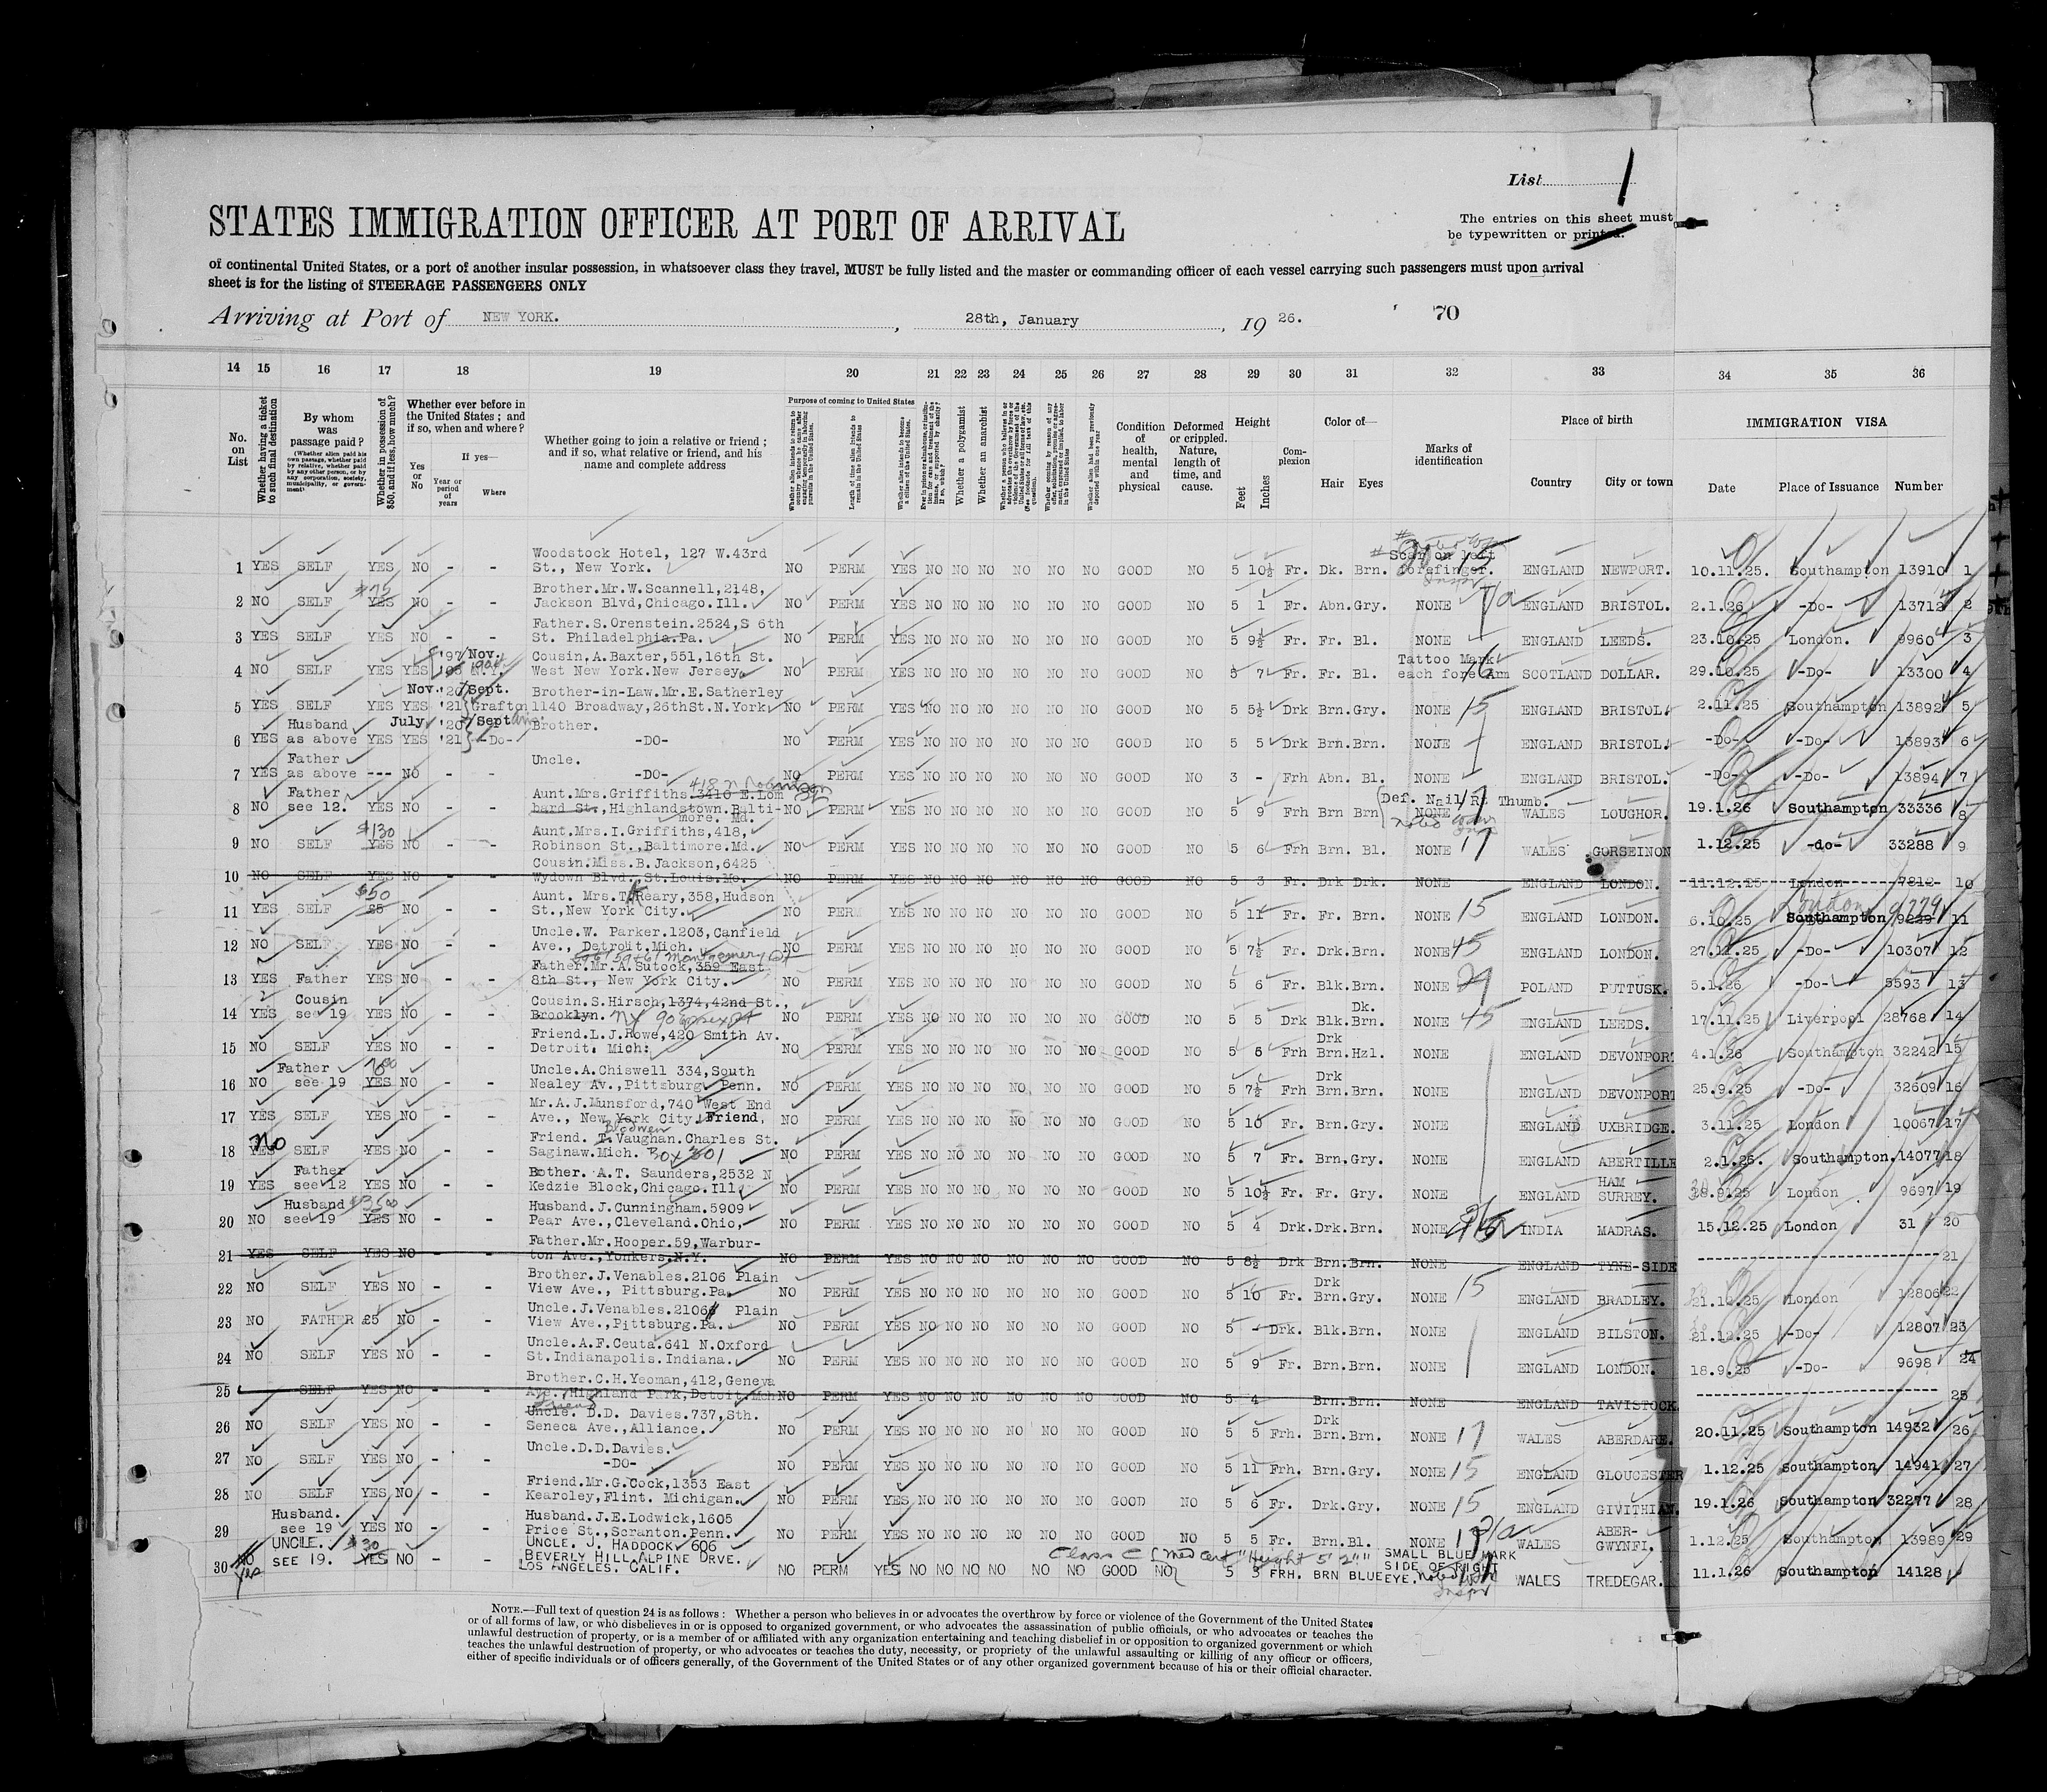 List 1
STATES IMMIGRATION OFFICER AT PORT OF ARRIVAL
The entries on this sheet must
be typewritten or printed.
of continental United States, or a port of another insular possession, in whatsoever class they travel, MUST be fully listed and the master or commanding officer of each vessel carrying such passengers must upon arrival
sheet is for the listing of STEERAGE PASSENGERS ONLY
Arriving at Port of NEW YORK. , 28th, January , 19 26. 70
14 15 16 17 18 19 20 21 22 23 24 25 26 27 28 29 30 31 32 33 34 35 36
No. on List
Whether having a ticket to such final destination
By whom was passage paid?
Whether in possession of $50, and if less, how much?
Whether ever before in the United States; and if so, when and where?
Yes or No
If yes—
Year or period of years
Where
Whether going to join a relative or friend; and if so, what relative or friend, and his name and complete address
Purpose of coming to United States
Length of time alien intends to remain in the United States
Whether alien intends to become a citizen of the United States.
Whether a polygamist
Whether an anarchist
Whether alien had been previously deported within one year
Condition of health, mental and physical
Deformed or crippled. Nature, length of time, and cause.
Height
Feet Inches
Complexion
Color of—
Hair Eyes
Marks of identification
Place of birth
Country City or town
IMMIGRATION VISA
Date Place of Issuance Number
Woodstock Hotel, 127 W.43rd Scar on left
1 YES SELF YES NO - - St., New York. NO PERM YES NO NO NO NO NO NO GOOD NO 5 10½ Fr. Dk. Brn. forefinger. ENGLAND NEWPORT. 10.11.25. Southampton 13910 1
$75 Brother.Mr.W.Scannell,2148,
2 NO SELF YES NO - - Jackson Blvd,Chicago.Ill. NO PERM YES NO NO NO NO NO NO GOOD NO 5 1 Fr. Abn.Gry. NONE ENGLAND BRISTOL. 2.1.26 -Do- 13712 2
Father.S.Orenstein.2524,S 6th
3 YES SELF YES NO - - St. Philadelphia.Pa. NO PERM YES NO NO NO NO NO NO GOOD NO 5 9½ Fr. Fr. Bl. NONE ENGLAND LEEDS. 23.10.25 London. 9960 3
'97 Nov. Cousin,A.Baxter,551,16th St. Tattoo Mark
4 NO SELF YES YES N.Y. West New York.New Jersey. NO PERM YES NO NO NO NO NO NO GOOD NO 5 7 Fr. Fr. Bl. each fore Arm SCOTLAND DOLLAR. 29.10.25 -Do- 13300 4
Nov.'20 Sept. Brother-in-Law.Mr.E.Satherley
5 YES SELF YES YES '21 Grafton 1140 Broadway,26thSt.N.York NO PERM YES NO NO NO NO NO NO GOOD NO 5 5½ Drk Brn.Gry. NONE 15 ENGLAND BRISTOL. 2.11.25 Southampton 13892 5
Husband July '20 Sept Brother.
6 YES as above YES YES '21 -Do- -DO- NO PERM YES NO NO NO NO NO NO GOOD NO 5 5 Drk Brn.Brn. NONE ENGLAND BRISTOL. -Do- -Do- 13893 6
Father Uncle.
7 YES as above --- NO - - -DO- NO PERM YES NO NO NO NO NO NO GOOD NO 3 - Frh Abn. Bl. NONE ENGLAND BRISTOL. -Do- -Do- 13894 7
418 N Robinson
Father Aunt.Mrs.Griffiths.3410 E.Lom Def. Nail Rt Thumb.
8 NO see 12. YES NO - - bard St.,Highlandstown.Balti- NO PERM YES NO NO NO NO NO NO GOOD NO 5 9 Frh Brn Brn NONE WALES LOUGHOR. 19.1.26 Southampton 33336 8
more. Md.
$130 Aunt.Mrs.I.Griffiths,418,
9 NO SELF YES NO - - Robinson St.,Baltimore.Md. NO PERM YES NO NO NO NO NO NO GOOD NO 5 6 Frh Brn. Bl. NONE 17 WALES GORSEINON 1.12.25 -do- 33288 9
Cousin.Miss.B.Jackson,6425
10 NO SELF YES NO Wydown Blvd. St.Louis.Mo. NO PERM YES NO NO NO NO NO NO GOOD NO 5 3 Fr. Drk Drk. NONE ENGLAND LONDON. 11.12.25 London 7812 10
$50 Aunt. Mrs.T.Reary,358,Hudson London 9779
11 YES SELF £5 NO - - St.,New York City. NO PERM YES NO NO NO NO NO NO GOOD NO 5 11 Fr. Fr. Brn. NONE 15 ENGLAND LONDON. 6.10.25 Southampton 9229 11
Uncle.W. Parker.1203,Canfield
12 NO SELF YES NO - - Ave., Detroit.Mich. NO PERM YES NO NO NO NO NO NO GOOD NO 5 7½ Fr. Drk.Brn. NONE 45 ENGLAND LONDON. 27.11.25 -Do- 10307 12
Father.Mr.A.Sutock,359 East
13 YES Father YES NO - - 8th St., New York City. NO PERM YES NO NO NO NO NO NO GOOD NO 5 6 Fr. Blk.Brn. NONE 29 POLAND PUTTUSK. 5.1.26 -Do- 5593 13
Cousin Cousin.S.Hirsch,1374,42nd St., Dk.
14 YES see 19 YES NO - - Brooklyn. NY NO PERM YES NO NO NO NO NO NO GOOD NO 5 5 Drk Blk.Brn. NONE 45 ENGLAND LEEDS. 17.11.25 Liverpool 28768 14
Friend.L.J.Rowe,420 Smith Av. Drk
15 NO SELF YES NO - - Detroit. Mich: NO PERM YES NO NO NO NO NO NO GOOD NO 5 6 Frh Brn.Hzl. NONE ENGLAND DEVONPORT 4.1.26 Southampton 32242 15
Father Uncle.A.Chiswell 334,South Drk
16 NO see 19 YES NO - - Nealey Av.,Pittsburg Penn. NO PERM YES NO NO NO NO NO NO GOOD NO 5 7½ Frh Brn.Brn. NONE ENGLAND DEVONPORT 25.9.25 -Do- 32609 16
Mr.A.J.Munsford,740 West End
17 YES SELF YES NO - - Ave., New York City. Friend, NO PERM YES NO NO NO NO NO NO GOOD NO 5 10 Fr. Brn.Gry. NONE ENGLAND UXBRIDGE. 3.11.25 London 10067 17
No Blodwen
Friend. T.Vaughan.Charles St.
18 YES SELF YES NO - - Saginaw.Mich. Box 301 NO PERM YES NO NO NO NO NO NO GOOD NO 5 7 Fr. Brn.Gry. NONE ENGLAND ABERTILLE 2.1.26. Southampton. 14077 18
Father Bother. A.T. Saunders,2532 N HAM
19 YES see 12 YES NO - - Kedzie Block,Chicago.Ill. NO PERM YES NO NO NO NO NO NO GOOD NO 5 10½ Fr. Fr. Gry. NONE ENGLAND SURREY. London 9697 19
Husband Husband.J.Cunningham.5909
20 NO see 19 YES NO - - Pear Ave.,Cleveland.Ohio, NO PERM YES NO NO NO NO NO NO GOOD NO 5 4 Drk.Drk.Brn. NONE INDIA MADRAS. 15.12.25 London 31 20
Father.Mr.Hooper.59,Warbur-
21 YES SELF YES NO ton Ave.,Yonkers.N.Y. NO PERM YES NO NO NO NO NO NO GOOD NO 5 8½ Drk Brn.Brn. NONE ENGLAND TYNE-SIDE 21
Brother.J.Venables.2106 Plain Drk
22 NO SELF YES NO - - View Ave., Pittsburg.Pa. NO PERM YES NO NO NO NO NO NO GOOD NO 5 10 Fr. Brn.Gry. NONE 15 ENGLAND BRADLEY. 21.12.25 London 12806 22
Uncle.J.Venables.2106 Plain
23 NO FATHER £5 NO - - View Ave.,Pittsburg.Pa. NO PERM YES NO NO NO NO NO NO GOOD NO 5 - Drk. Blk.Brn. NONE ENGLAND BILSTON. 21.12.25 -Do- 12807 23
Uncle.A.F.Ceuta.641 N.Oxford
24 NO SELF YES NO - - St.Indianapolis.Indiana. NO PERM YES NO NO NO NO NO NO GOOD NO 5 9 Fr. Brn.Brn. NONE ENGLAND LONDON. 18.9.25 -Do- 9698 24
Brother.C.H.Yeoman,412,Geneva
25 SELF YES NO - - Ave. Highland Park,Detroit.Mch NO PERM YES NO NO NO NO NO NO GOOD NO 5 4 Brn.Brn. NONE ENGLAND TAVISTOCK. 25
Friend
Uncle. D.D. Davies.737,Sth. Drk
26 NO SELF YES NO - - Seneca Ave.,Alliance. NO PERM YES NO NO NO NO NO NO GOOD NO 5 5 Frh. Brn.Brn. NONE 17 WALES ABERDARE. 20.11.25 Southampton 14932 26
Uncle.D.D.Davies.
27 NO SELF YES NO - - -DO- NO PERM YES NO NO NO NO NO NO GOOD NO 5 11 Frh. Brn.Gry. NONE 15 ENGLAND GLOUCESTER 1.12.25 Southampton 14941 27
Friend.Mr.G.Cock,1353 East
28 NO SELF YES NO - - Kearoley,Flint. Michigan. NO PERM YES NO NO NO NO NO NO GOOD NO 5 6 Fr. Drk.Gry. NONE 15 ENGLAND GIVITHIAN. 19.1.26 Southampton 32277 28
Husband. Husband.J.E.Lodwick,1605 ABER-
29 see 19 YES NO - - Price St.,Scranton.Penn. NO PERM YES NO NO NO NO NO NO GOOD NO 5 5 Fr. Brn.Bl. NONE WALES GWYNFI. 1.12.25 Southampton 13989 29
UNCLE. $30 UNCLE. J. HADDOCK 606 Class C Med Cert "Height 5' 2"" SMALL BLUE MARK
NO SEE 19. YES NO - - BEVERLY HILL ALPINE DRVE. SIDE OF RIGHT
30 Yes LOS ANGELES. CALIF. NO PERM YES NO NO NO NO NO NO GOOD NO 5 3 FRH. BRN BLUE EYE. WALES TREDEGAR. 11.1.26 Southampton 14128
NOTE.—Full text of question 24 is as follows: Whether a person who believes in or advocates the overthrow by force or violence of the Government of the United States
or of all forms of law, or who disbelieves in or is opposed to organized government, or who advocates the assassination of public officials, or who advocates or teaches the
unlawful destruction of property, or is a member of or affiliated with any organization entertaining and teaching disbelief in or opposition to organized government or which
teaches the unlawful destruction of property, or who advocates or teaches the duty, necessity, or propriety of the unlawful assaulting or killing of any officer or officers,
either of specific individuals or of officers generally, of the Government of the United States or of any other organized government because of his or their official character.